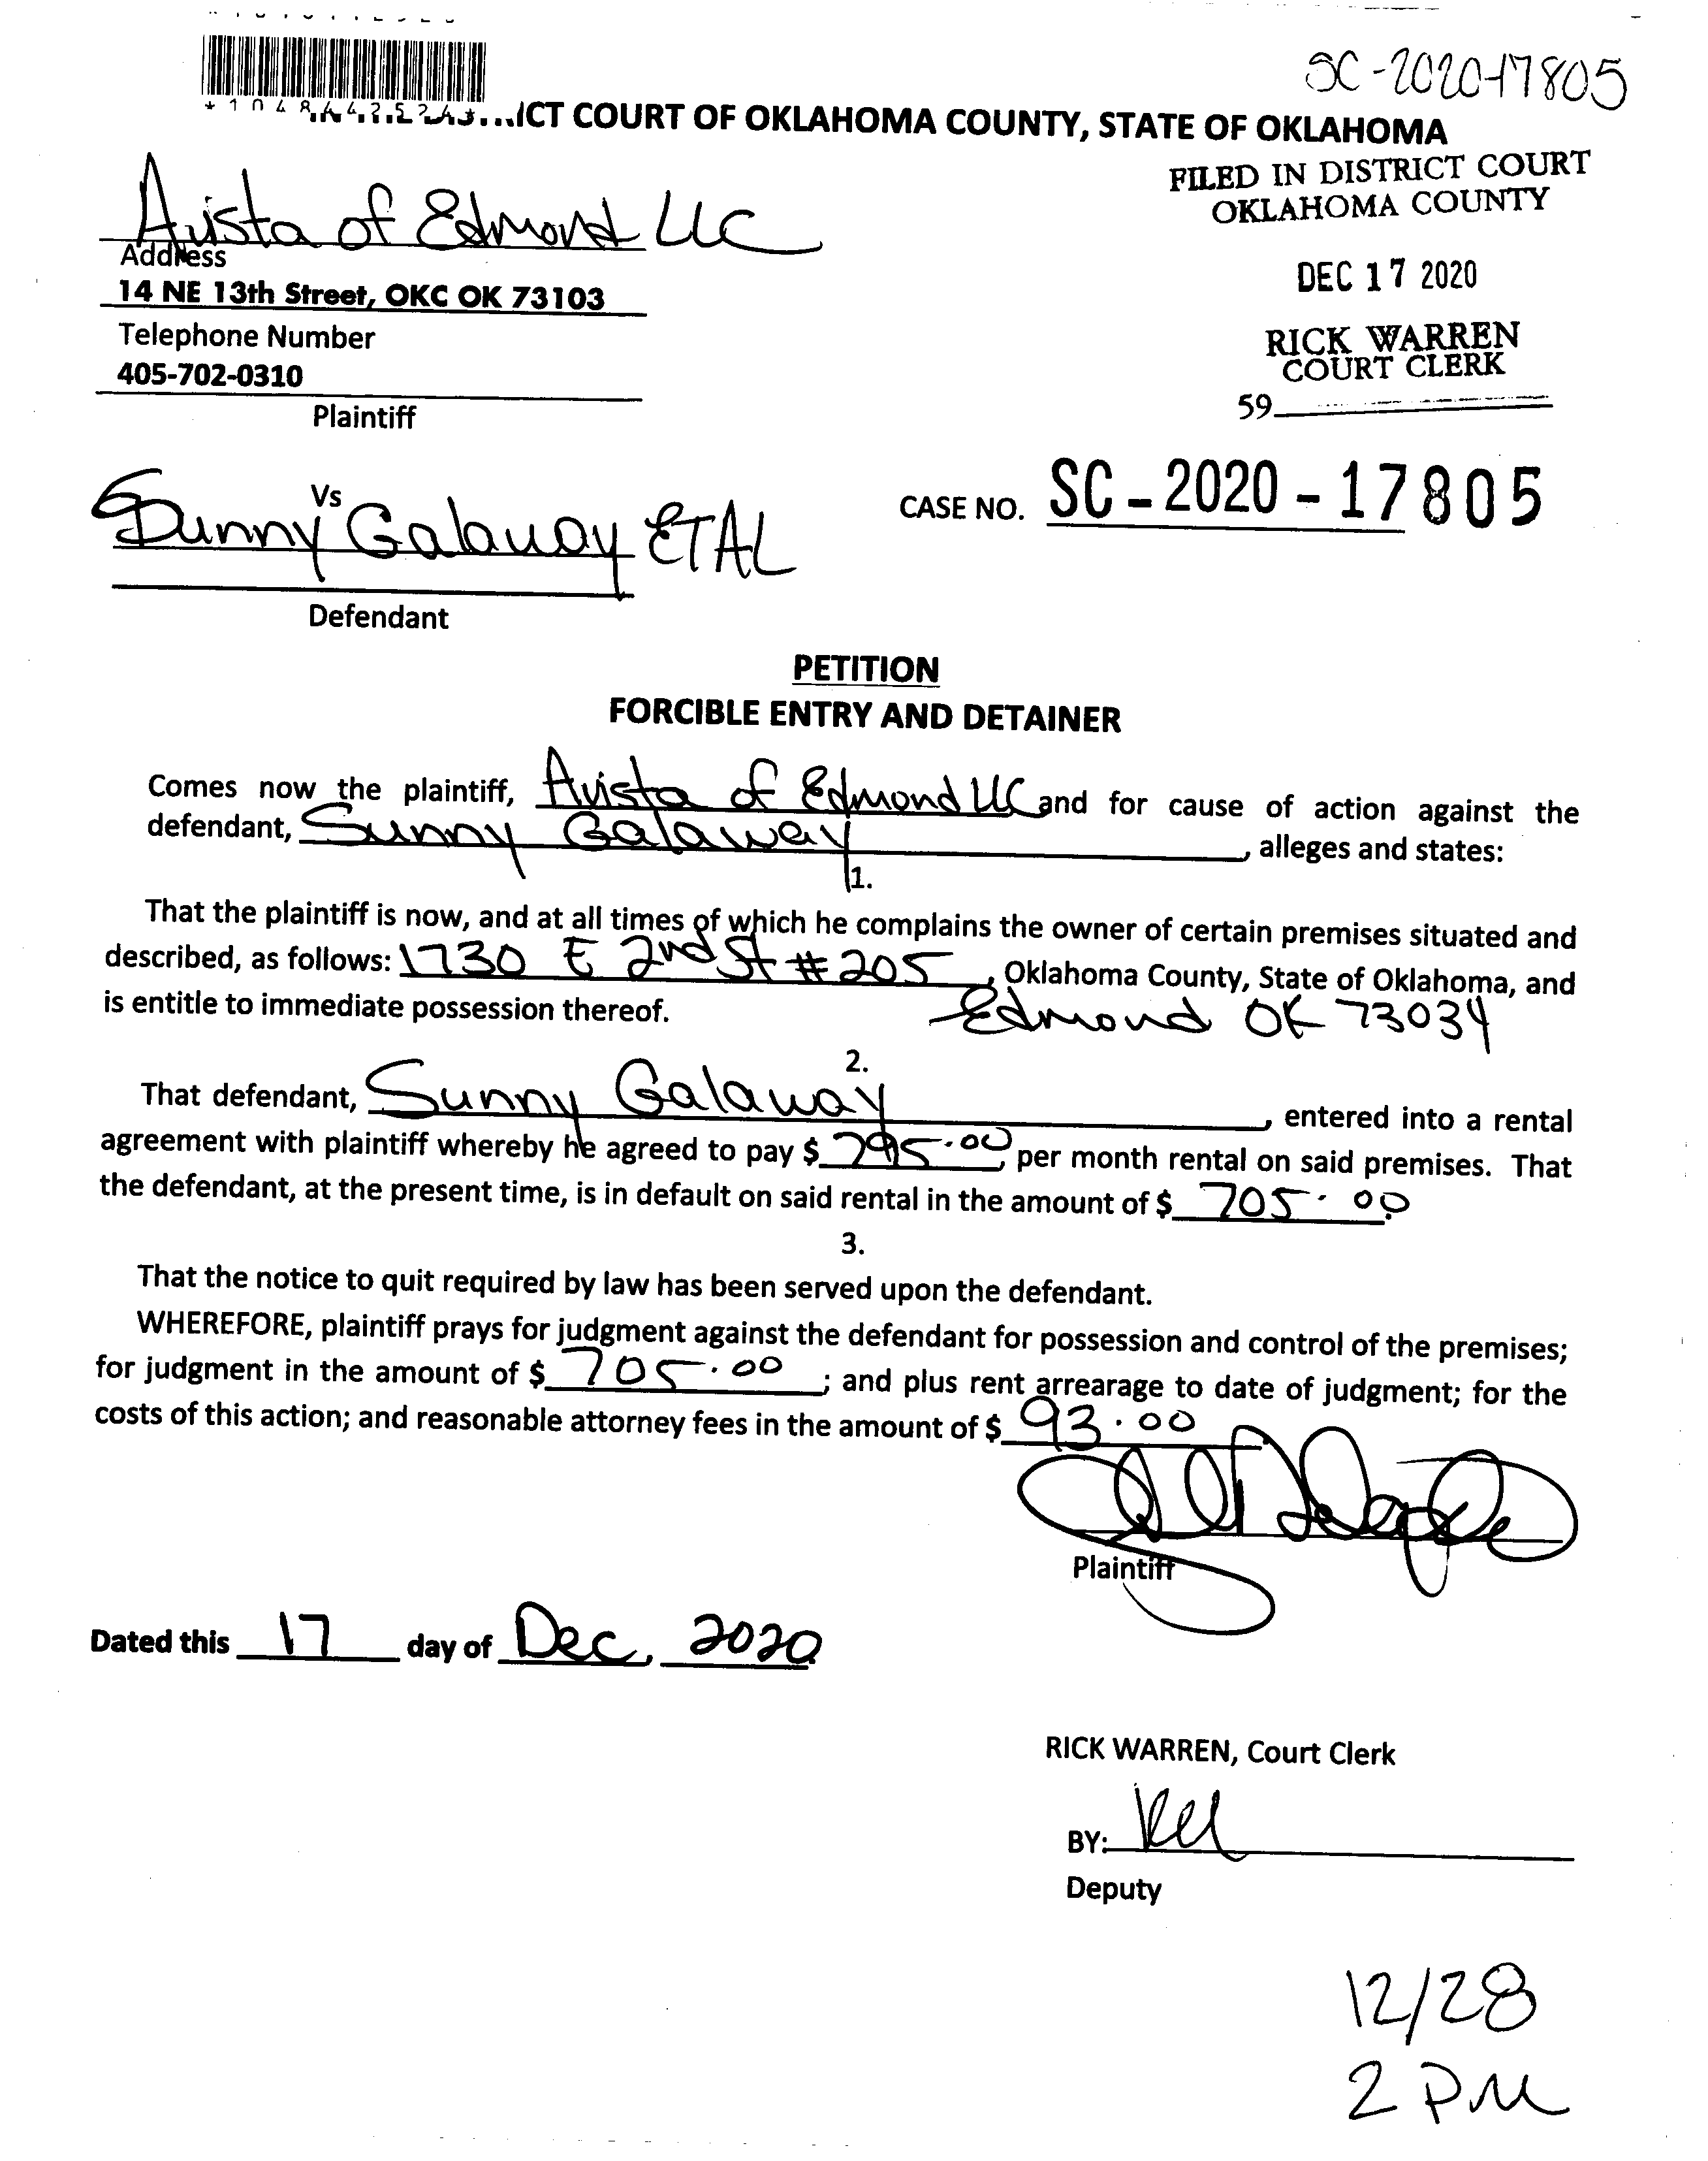 SC-2020-17805
ICT COURT OF OKLAHOMA COUNTY, STATE OF OKLAHOMA
FILED IN DISTRICT COURT
OKLAHOMA COUNTY
Avista of Edmond LLC
Address
14 NE 13th Street, OKC OK 73103
DEC 17 2020
Telephone Number
405-702-0310
RICK WARREN
COURT CLERK
59
Plaintiff
Vs
Sunny Galaway ETAL
CASE NO. SC-2020-17805
Defendant
PETITION
FORCIBLE ENTRY AND DETAINER
Comes now the plaintiff, Avista of Edmond LLC and for cause of action against the
defendant, Sunny Galaway, alleges and states:
1.
That the plaintiff is now, and at all times of which he complains the owner of certain premises situated and
described, as follows: 1730 E 2nd St #205, Oklahoma County, State of Oklahoma, and
is entitle to immediate possession thereof. Edmond OK 73034
2.
That defendant, Sunny Galaway, entered into a rental
agreement with plaintiff whereby he agreed to pay $ 795.00, per month rental on said premises. That
the defendant, at the present time, is in default on said rental in the amount of $ 705.00.
3.
That the notice to quit required by law has been served upon the defendant.
WHEREFORE, plaintiff prays for judgment against the defendant for possession and control of the premises;
for judgment in the amount of $ 705.00; and plus rent arrearage to date of judgment; for the
costs of this action; and reasonable attorney fees in the amount of $ 93.00
Plaintiff
Dated this 17 day of Dec, 2020
RICK WARREN, Court Clerk
BY:
Deputy
12/28
2 PM